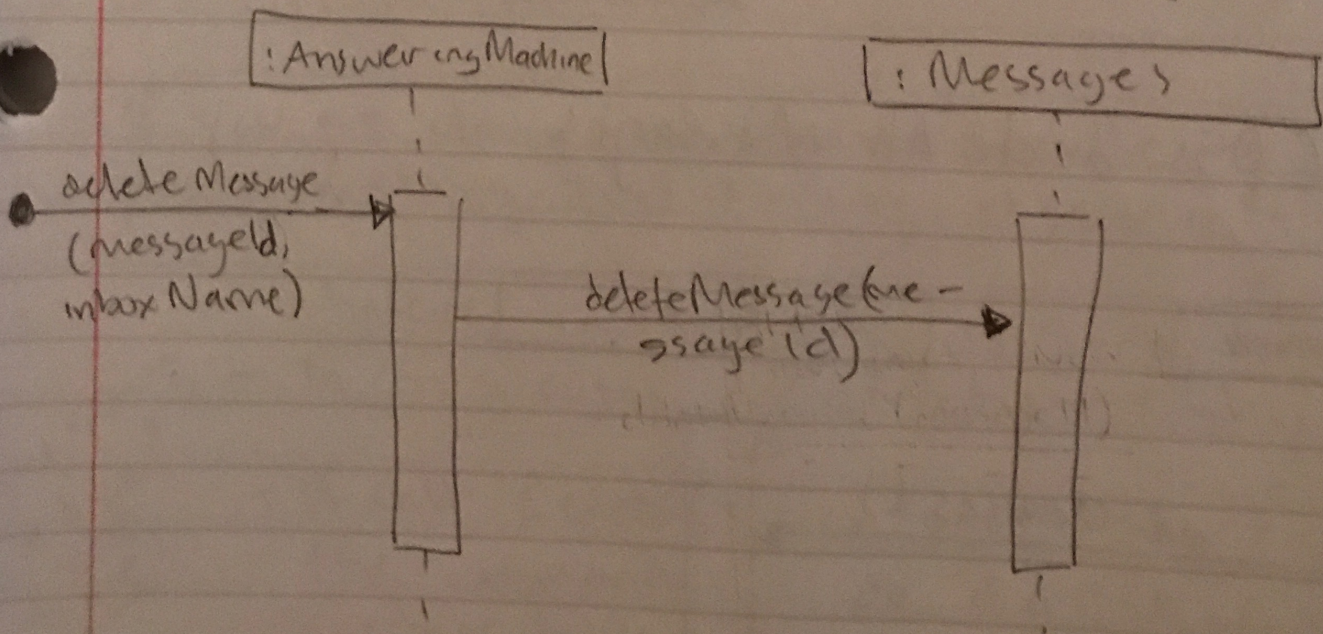 :AnsweringMachine
: Messages
deleteMessage
(messageId,
inboxName)
deleteMessage(me-
ssageId)